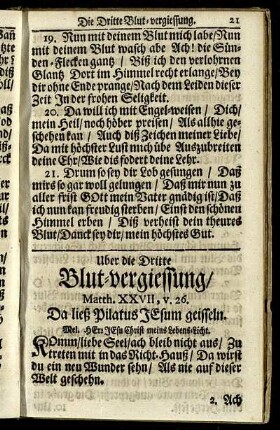 Die Dritte Blut-vergiessung. 21
19. Nun mit deinem Blut mich labe/Nun
mit deinem Blut wasch abe Ach! die Sün-
den-Flecken gantz / Biß ich den verlohrnen
Glantz Dort im Himmel recht erlange/Bey
dir ohne Ende prange/Nach dem Leiden dieser
Zeit In der frohen Seligkeit.
20. Da will ich mit Engel-weisen / Dich/
mein Heil/noch höher preisen/ Als allhie ge-
schehen kar / Auch diß Zeichen meiner Liebe/
Da mit höchster Lust mich übe Auszubreiten
deine Ehr/Wie dis fodert deine Lehr.
21. Drum so sey dir Lob gesungen / Daß
mirs so gar woll gelungen / Daß mir nun zu
aller frist GOtt mein Vater gnädig ist/Daß
ich nun kan freudig sterben/Einst den schönen
Himmel erben / Diß verheist dein theures
Blut/Danck sey dir/mein höchstes Gut.
Uber die Dritte
Blut-vergiessung/
Matth. XXVII, v. 26.
Da ließ Pilatus JEsum geisseln.
Mel. HErr JEsu Christ meins Lebens-Licht.
KOmm/liebe Seel/ach bleib nicht aus/ Zu
Kreten mit in das Richt-Hauß/ Da wirst
du ein neu Wunder sehn/ Als nie auf dieser
Welt geschehn.
2. Ach